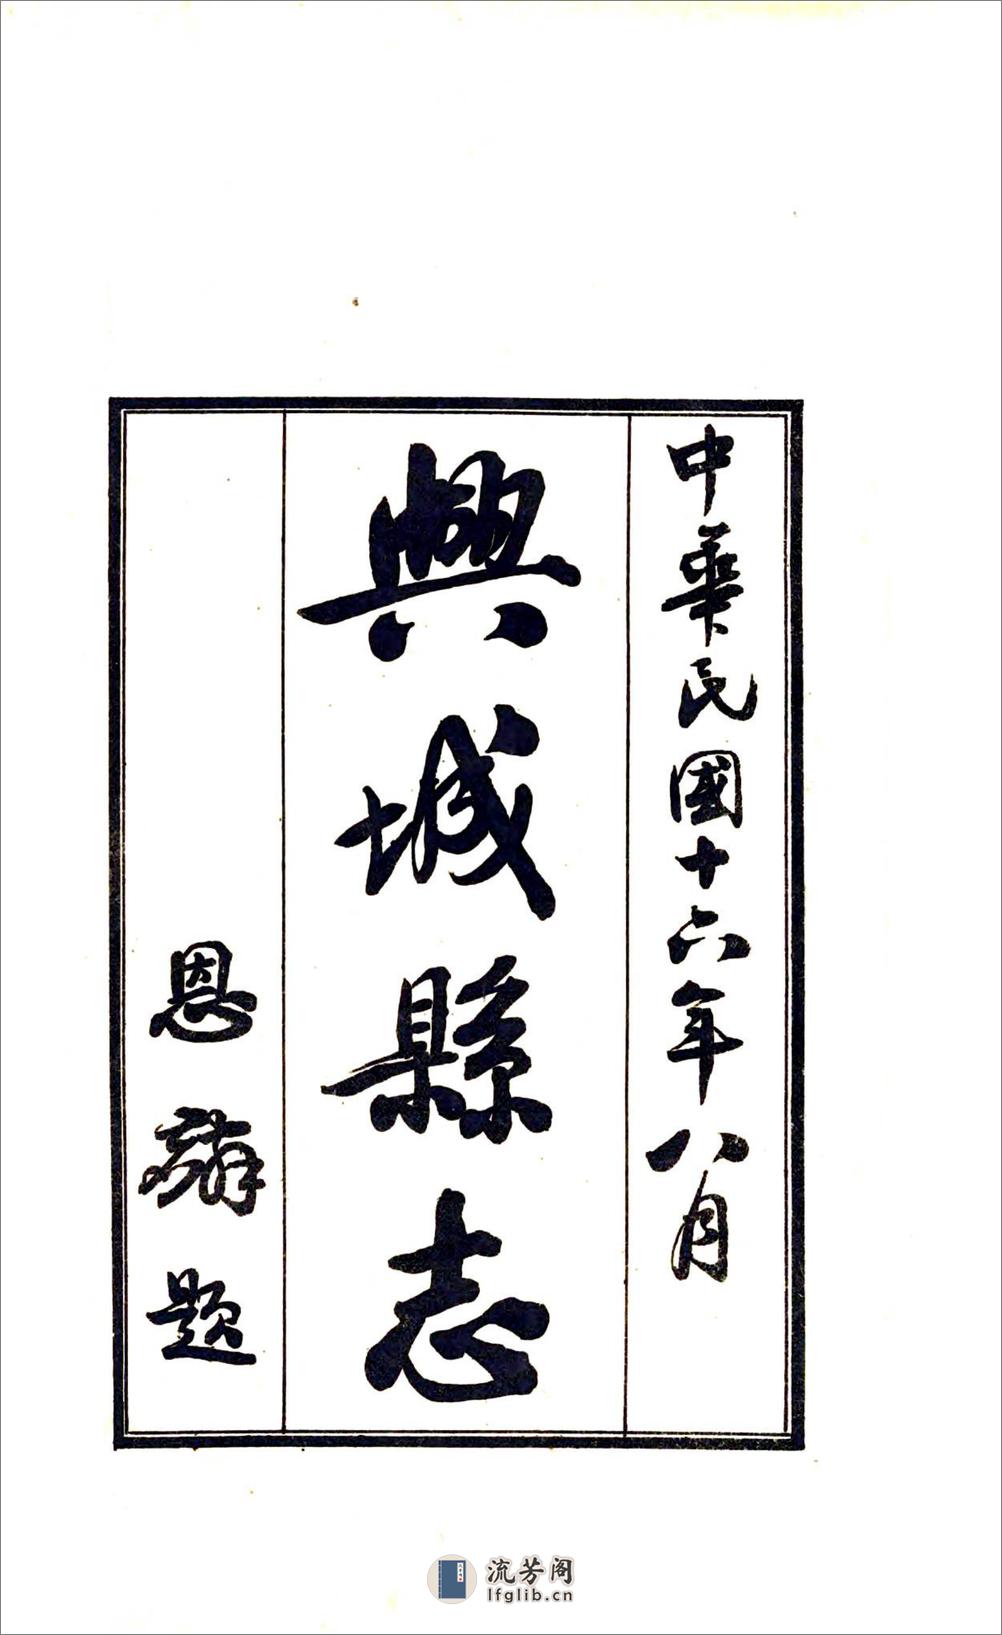 中華民國十六年八月
興城縣志
恩麟題
流芳阁
lfglib.cn